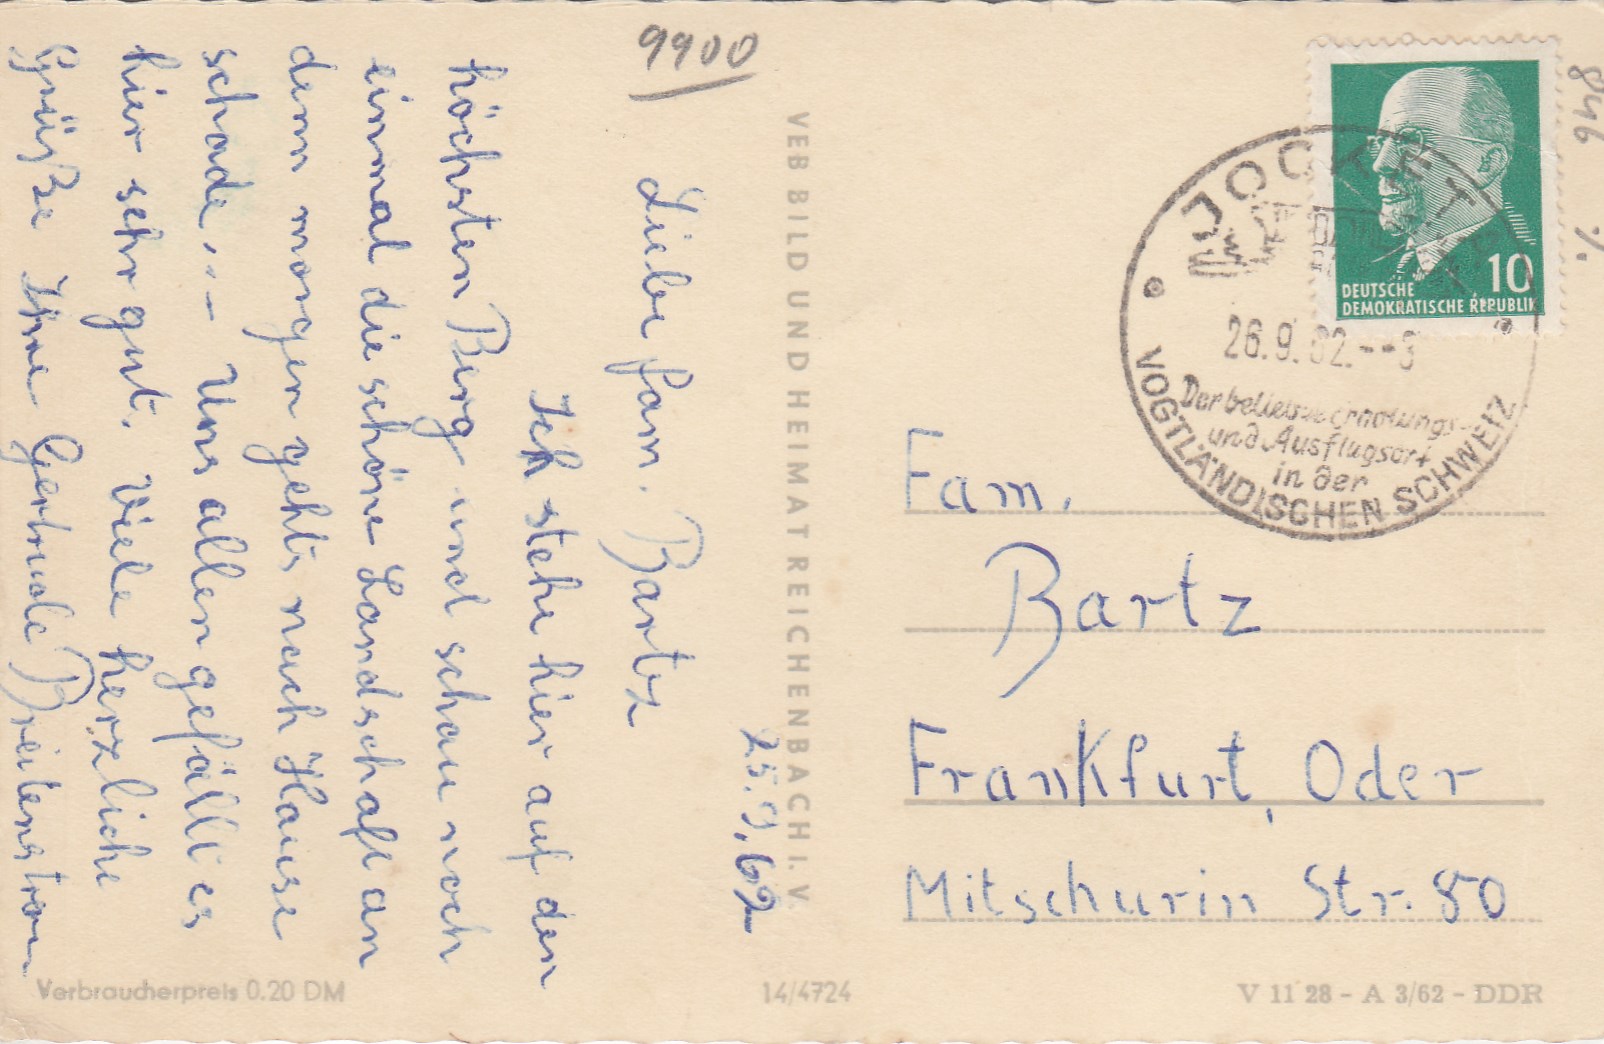 9900
846
%
25.9.62
Liebe Fam. Bartz
Ich stehe hier auf den
höchsten Berg und schau noch
einmal die schöne Landschaft an
denn morgen gehts nach Hause
schade,.- Uns allen gefällt es
hier sehr gut. Viele herzliche
Grüße Ihre Gertrude
VEB BILD UND HEIMAT REICHENBACH I. V.
JOCKETA
26.9.62.--8
Der beliebte Erholungs-
und Ausflugsort
in der
VOGTLÄNDISCHEN SCHWEIZ
10
DEUTSCHE
DEMOKRATISCHE REPUBLIK
Fam.
Bartz
Frankfurt, Oder
Mitschurin Str. 80
Verbraucherpreis 0.20 DM
14/4724
V 11 28 - A 3/62 - DDR